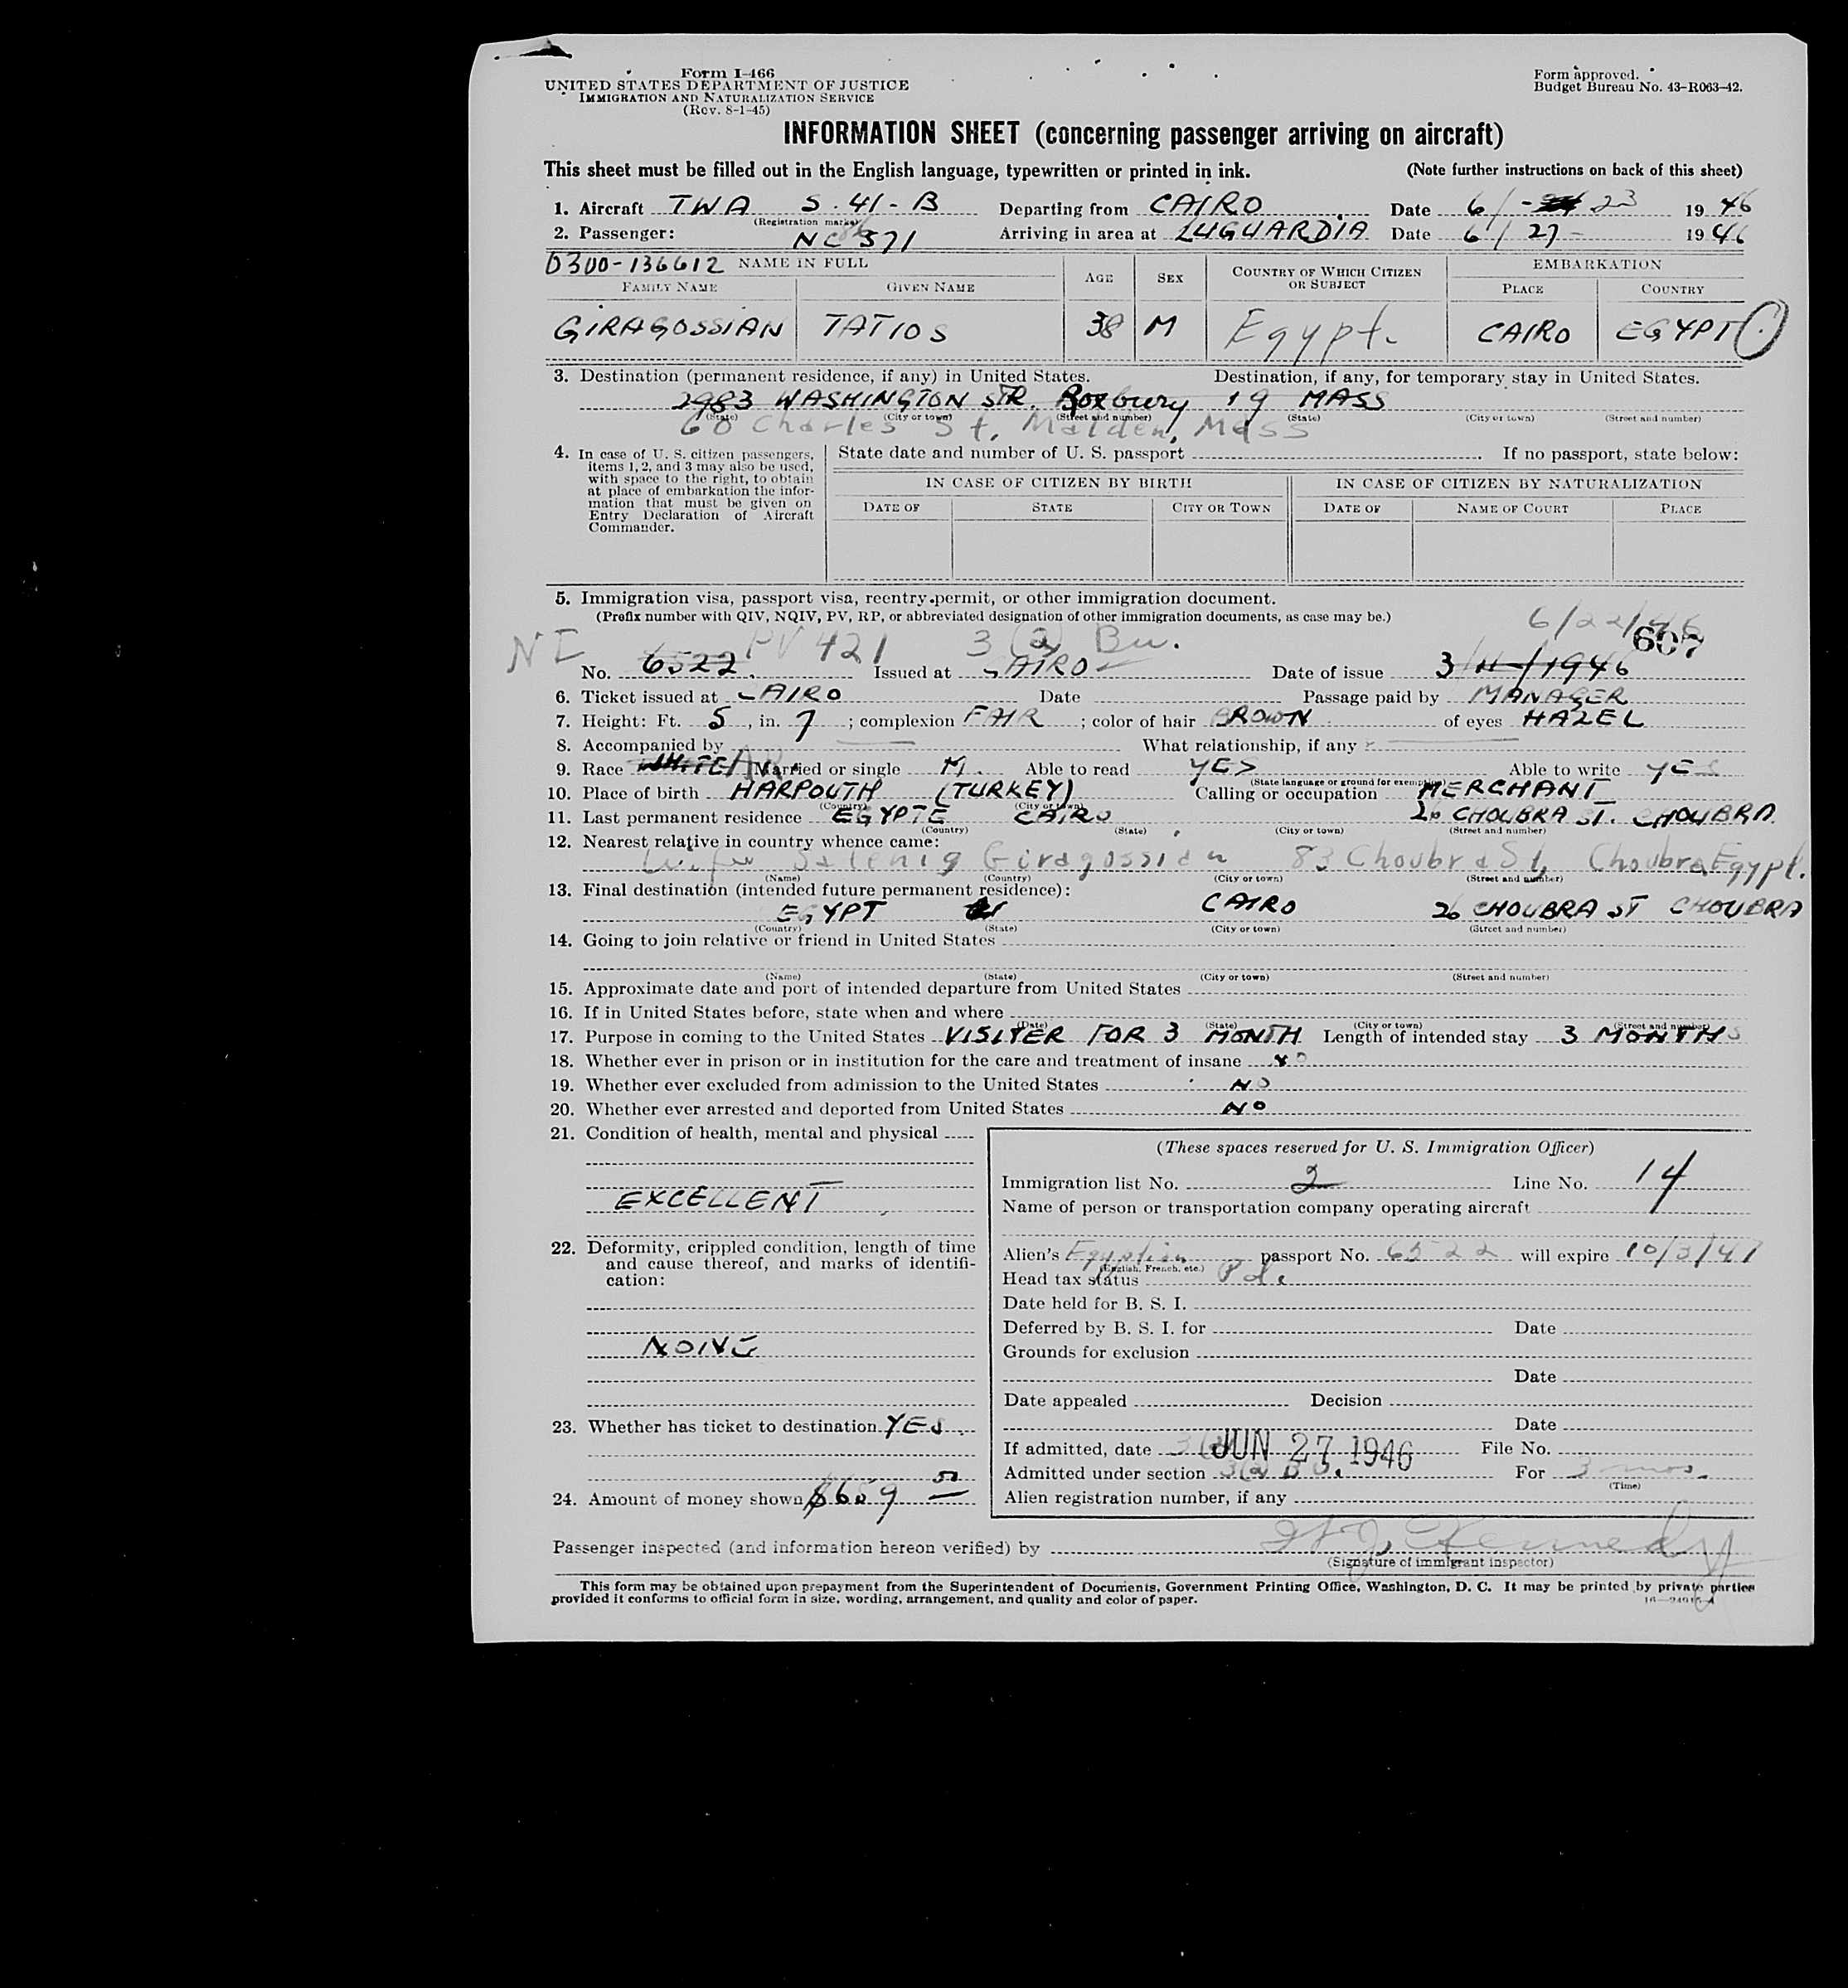 Form I-466
UNITED STATES DEPARTMENT OF JUSTICE
IMMIGRATION AND NATURALIZATION SERVICE
(Rev. 8-1-45)
Form approved.
Budget Bureau No. 43-R063-42.
INFORMATION SHEET (concerning passenger arriving on aircraft)
This sheet must be filled out in the English language, typewritten or printed in ink. (Note further instructions on back of this sheet)
1. Aircraft TWA S-41-B Departing from CAIRO Date 6/-23 1946
(Registration marks)
2. Passenger: NC 86 571 Arriving in area at LUGUARDIA Date 6/27- 1946
0300-136612 NAME IN FULL AGE SEX COUNTRY OF WHICH CITIZEN OR SUBJECT EMBARKATION
FAMILY NAME GIVEN NAME PLACE COUNTRY
GIRAGOSSIAN TATIOS 38 M Egypt. CAIRO EGYPT
3. Destination (permanent residence, if any) in United States. Destination, if any, for temporary stay in United States.
2983 WASHINGTON STR. Roxbury 19 MASS
(State) (City or town) (Street and number) (State) (City or town) (Street and number)
60 Charles St, Malden, Mass
4. In case of U. S. citizen passengers, items 1, 2, and 3 may also be used, with space to the right, to obtain at place of embarkation the information that must be given on Entry Declaration of Aircraft Commander.
State date and number of U. S. passport If no passport, state below:
IN CASE OF CITIZEN BY BIRTH IN CASE OF CITIZEN BY NATURALIZATION
DATE OF STATE CITY OR TOWN DATE OF NAME OF COURT PLACE
5. Immigration visa, passport visa, reentry permit, or other immigration document.
(Prefix number with QIV, NQIV, PV, RP, or abbreviated designation of other immigration documents, as case may be.)
6/22/46
607
NI PV 421 3 (2) Bu.
No. 6522. Issued at CAIRO Date of issue 3/11/1946
6. Ticket issued at CAIRO Date Passage paid by MANAGER
7. Height: Ft. 5, in. 7; complexion FAIR; color of hair BROWN of eyes HAZEL
8. Accompanied by What relationship, if any
9. Race WHITE AR. Married or single M. Able to read YES Able to write YES
(State language or ground for exemption)
10. Place of birth HARPOUTH (TURKEY) Calling or occupation MERCHANT
(Country) (City or town)
11. Last permanent residence EGYPTE CAIRO 26 CHOUBRA ST. CHOUBRA
(Country) (State) (City or town) (Street and number)
12. Nearest relative in country whence came:
Wife Satenig Giragossian 83 Choubra St, Choubra, Egypt.
(Name) (Country) (City or town) (Street and number)
13. Final destination (intended future permanent residence):
EGYPT CAIRO 26 CHOUBRA ST CHOUBRA
(Country) (State) (City or town) (Street and number)
14. Going to join relative or friend in United States
(Name) (State) (City or town) (Street and number)
15. Approximate date and port of intended departure from United States
16. If in United States before, state when and where
(Date) (State) (City or town) (Street and number)
17. Purpose in coming to the United States VISITER FOR 3 MONTH Length of intended stay 3 MONTHS
18. Whether ever in prison or in institution for the care and treatment of insane NO
19. Whether ever excluded from admission to the United States NO
20. Whether ever arrested and deported from United States NO
21. Condition of health, mental and physical
EXCELLENT
22. Deformity, crippled condition, length of time and cause thereof, and marks of identification:
NONE
23. Whether has ticket to destination YES
24. Amount of money shown $659 50
(These spaces reserved for U. S. Immigration Officer)
Immigration list No. 2 Line No. 14
Name of person or transportation company operating aircraft
Alien's Egyptian passport No. 6522 will expire 10/3/47
(English, French, etc.)
Head tax status Pd.
Date held for B. S. I.
Deferred by B. S. I. for Date
Grounds for exclusion
Date
Date appealed Decision
Date
If admitted, date JUN 27 1946 File No.
Admitted under section 3(2) BU. For 3 mos.
(Time)
Alien registration number, if any
Passenger inspected (and information hereon verified) by Kennedy
(Signature of immigrant inspector)
This form may be obtained upon prepayment from the Superintendent of Documents, Government Printing Office, Washington, D. C. It may be printed by private parties
provided it conforms to official form in size, wording, arrangement, and quality and color of paper.